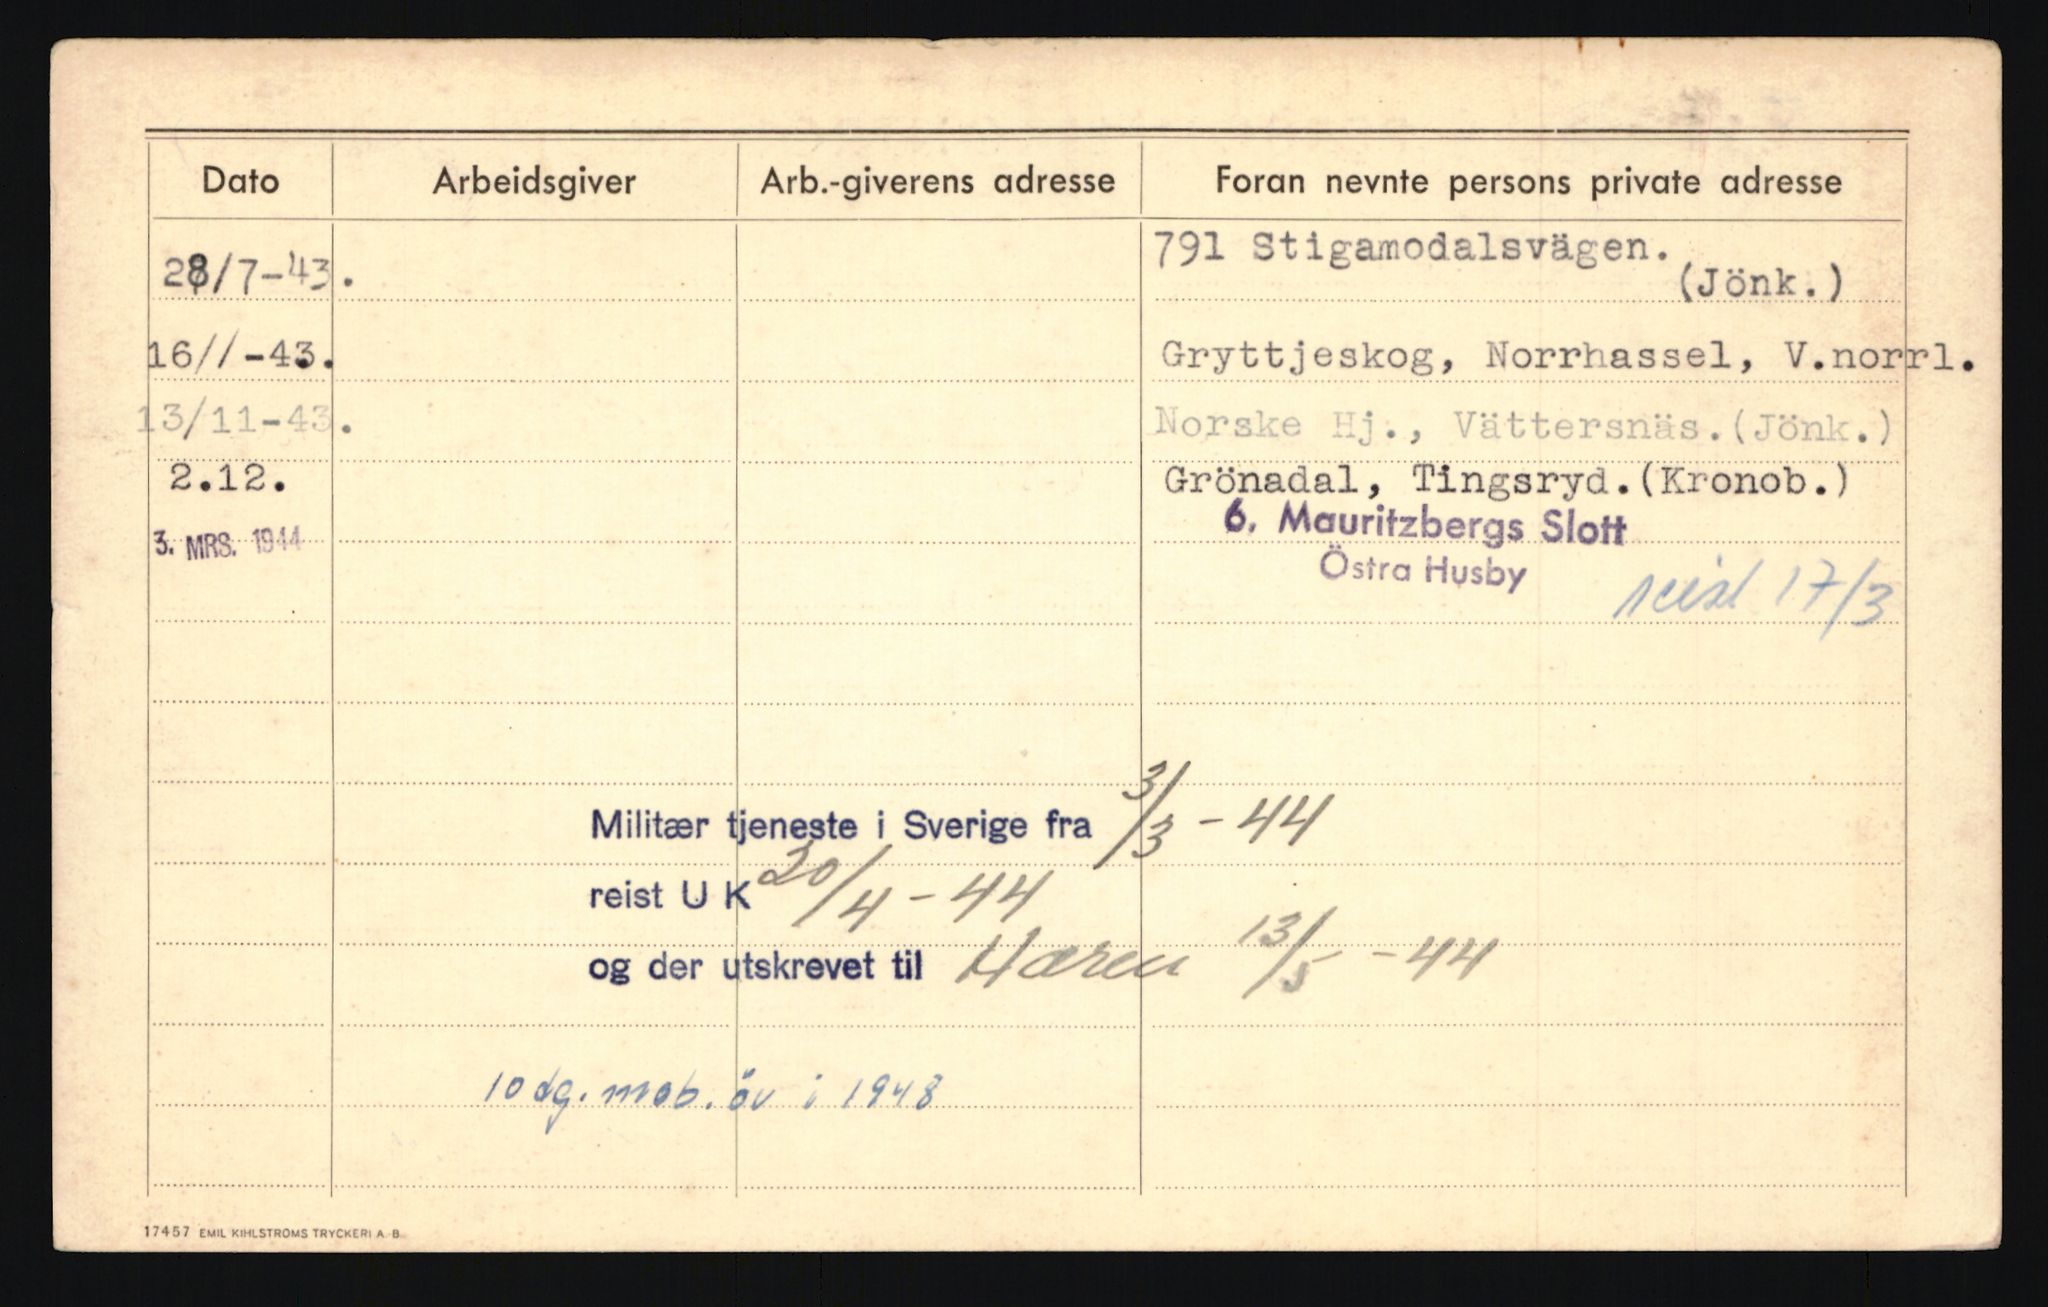 Dato Arbeidsgiver Arb.-giverens adresse Foran nevnte persons private adresse
28/7-43. 791 Stigamodalsvägen.
(Jönk.)
16//-43. Gryttjeskog, Norrhassel, V.norrl.
13/11-43. Norske Hj., Vättersnäs.(Jönk.)
2.12. Grönadal, Tingsryd.(Kronob.)
3. MRS. 1944 6. Mauritzbergs Slott
Östra Husby
reist 17/3
Militær tjeneste i Sverige fra 3/3-44
reist U K 20/4-44
og der utskrevet til Hæren 13/5-44
10 dg. mob. öv i 1948
17457 EMIL KIHLSTRÖMS TRYCKERI A.-B.